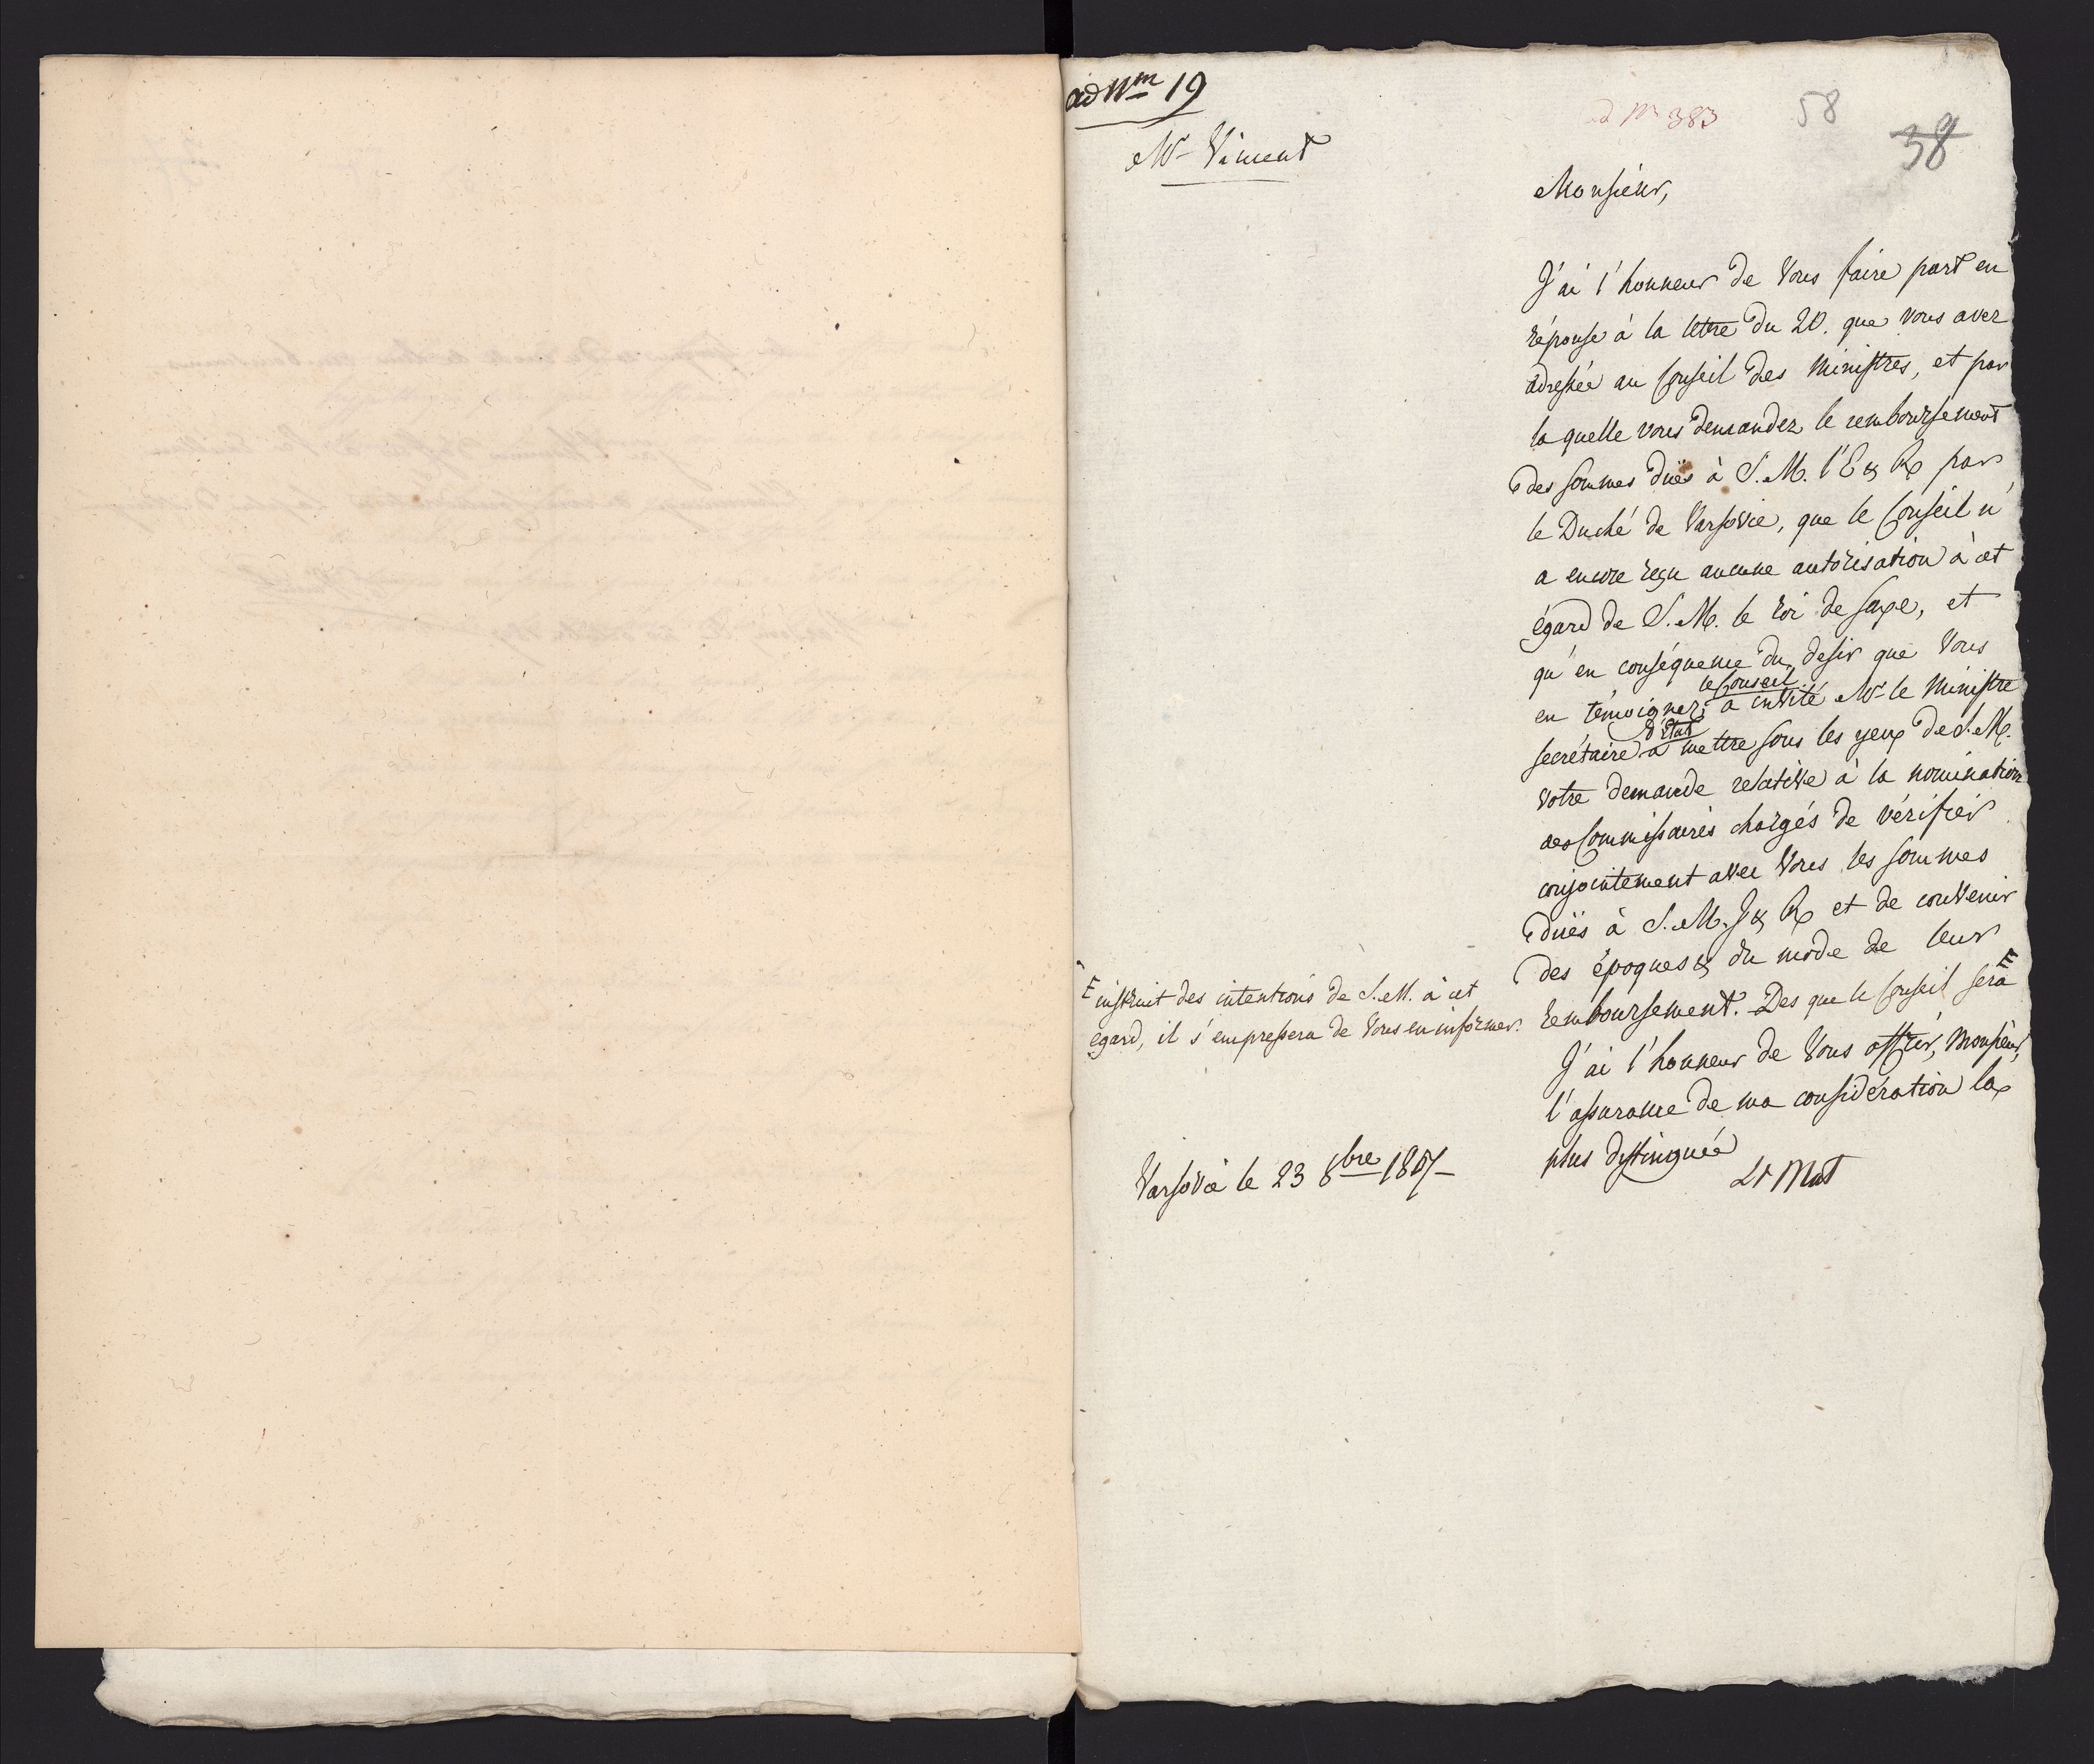 ad Nm 19
ad Nr 383
58
38
Mr Vincent
Monsieur,
J'ai l'honneur de Vous faire part en
réponse à la lettre du 20. que vous avez
adressée au Conseil des Ministres, et par
la quelle vous demandez le remboursement
des sommes duës à S. M. l'E & R par
le Duché de Varsovie, que le Conseil n'
a encore reçu aucune autorisation à cet
égard de S. M. le roi de Saxe, et
qu'en conséquence du desir que Vous
en témoignez, le Conseil a invité Mr le Ministre
secrétaire d'état à mettre sous les yeux de S. M.
votre demande relative à la nomination
des Commissaires chargés de vérifier
conjointement avec Vous les sommes
duës à S. M. I & R et de convenir
des époques & du mode de leur
remboursement. Des que le Conseil sera
instruit des intentions de S. M. à cet
égard, il s'empressera de Vous en informer.
J'ai l'honneur de Vous offrir, Monsieur,
l'assurance de ma considération la
plus distinguée
Varsovie le 23 8bre 1807